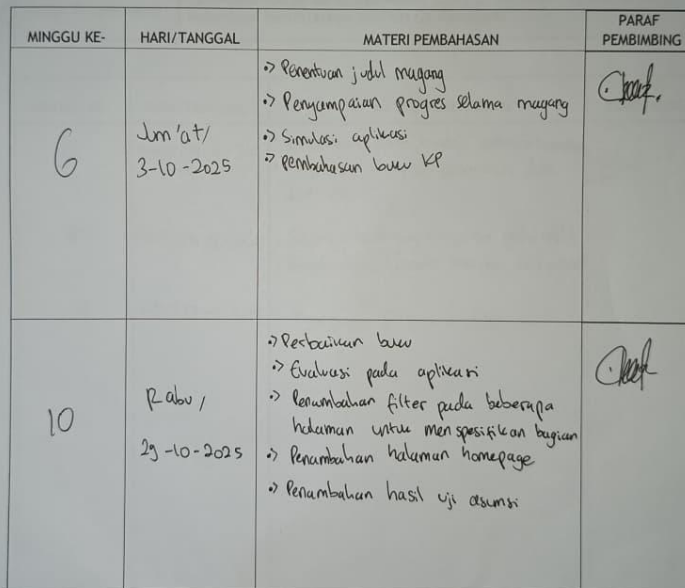 MINGGU KE-
HARI/TANGGAL
MATERI PEMBAHASAN
PARAF
PEMBIMBING
6
Jum'at/
3-10-2025
•> Penentuan judul magang
•> Penyampaian progres selama magang
•> Simulasi aplikasi
•> Pembahasan buku KP
10
Rabu,
29-10-2025
•> Perbaikan buku
•> Evaluasi pada aplikasi
•> Penambahan filter pada beberapa
halaman untuk menspesifikan bagian
•> Penambahan halaman homepage
•> Penambahan hasil uji asumsi